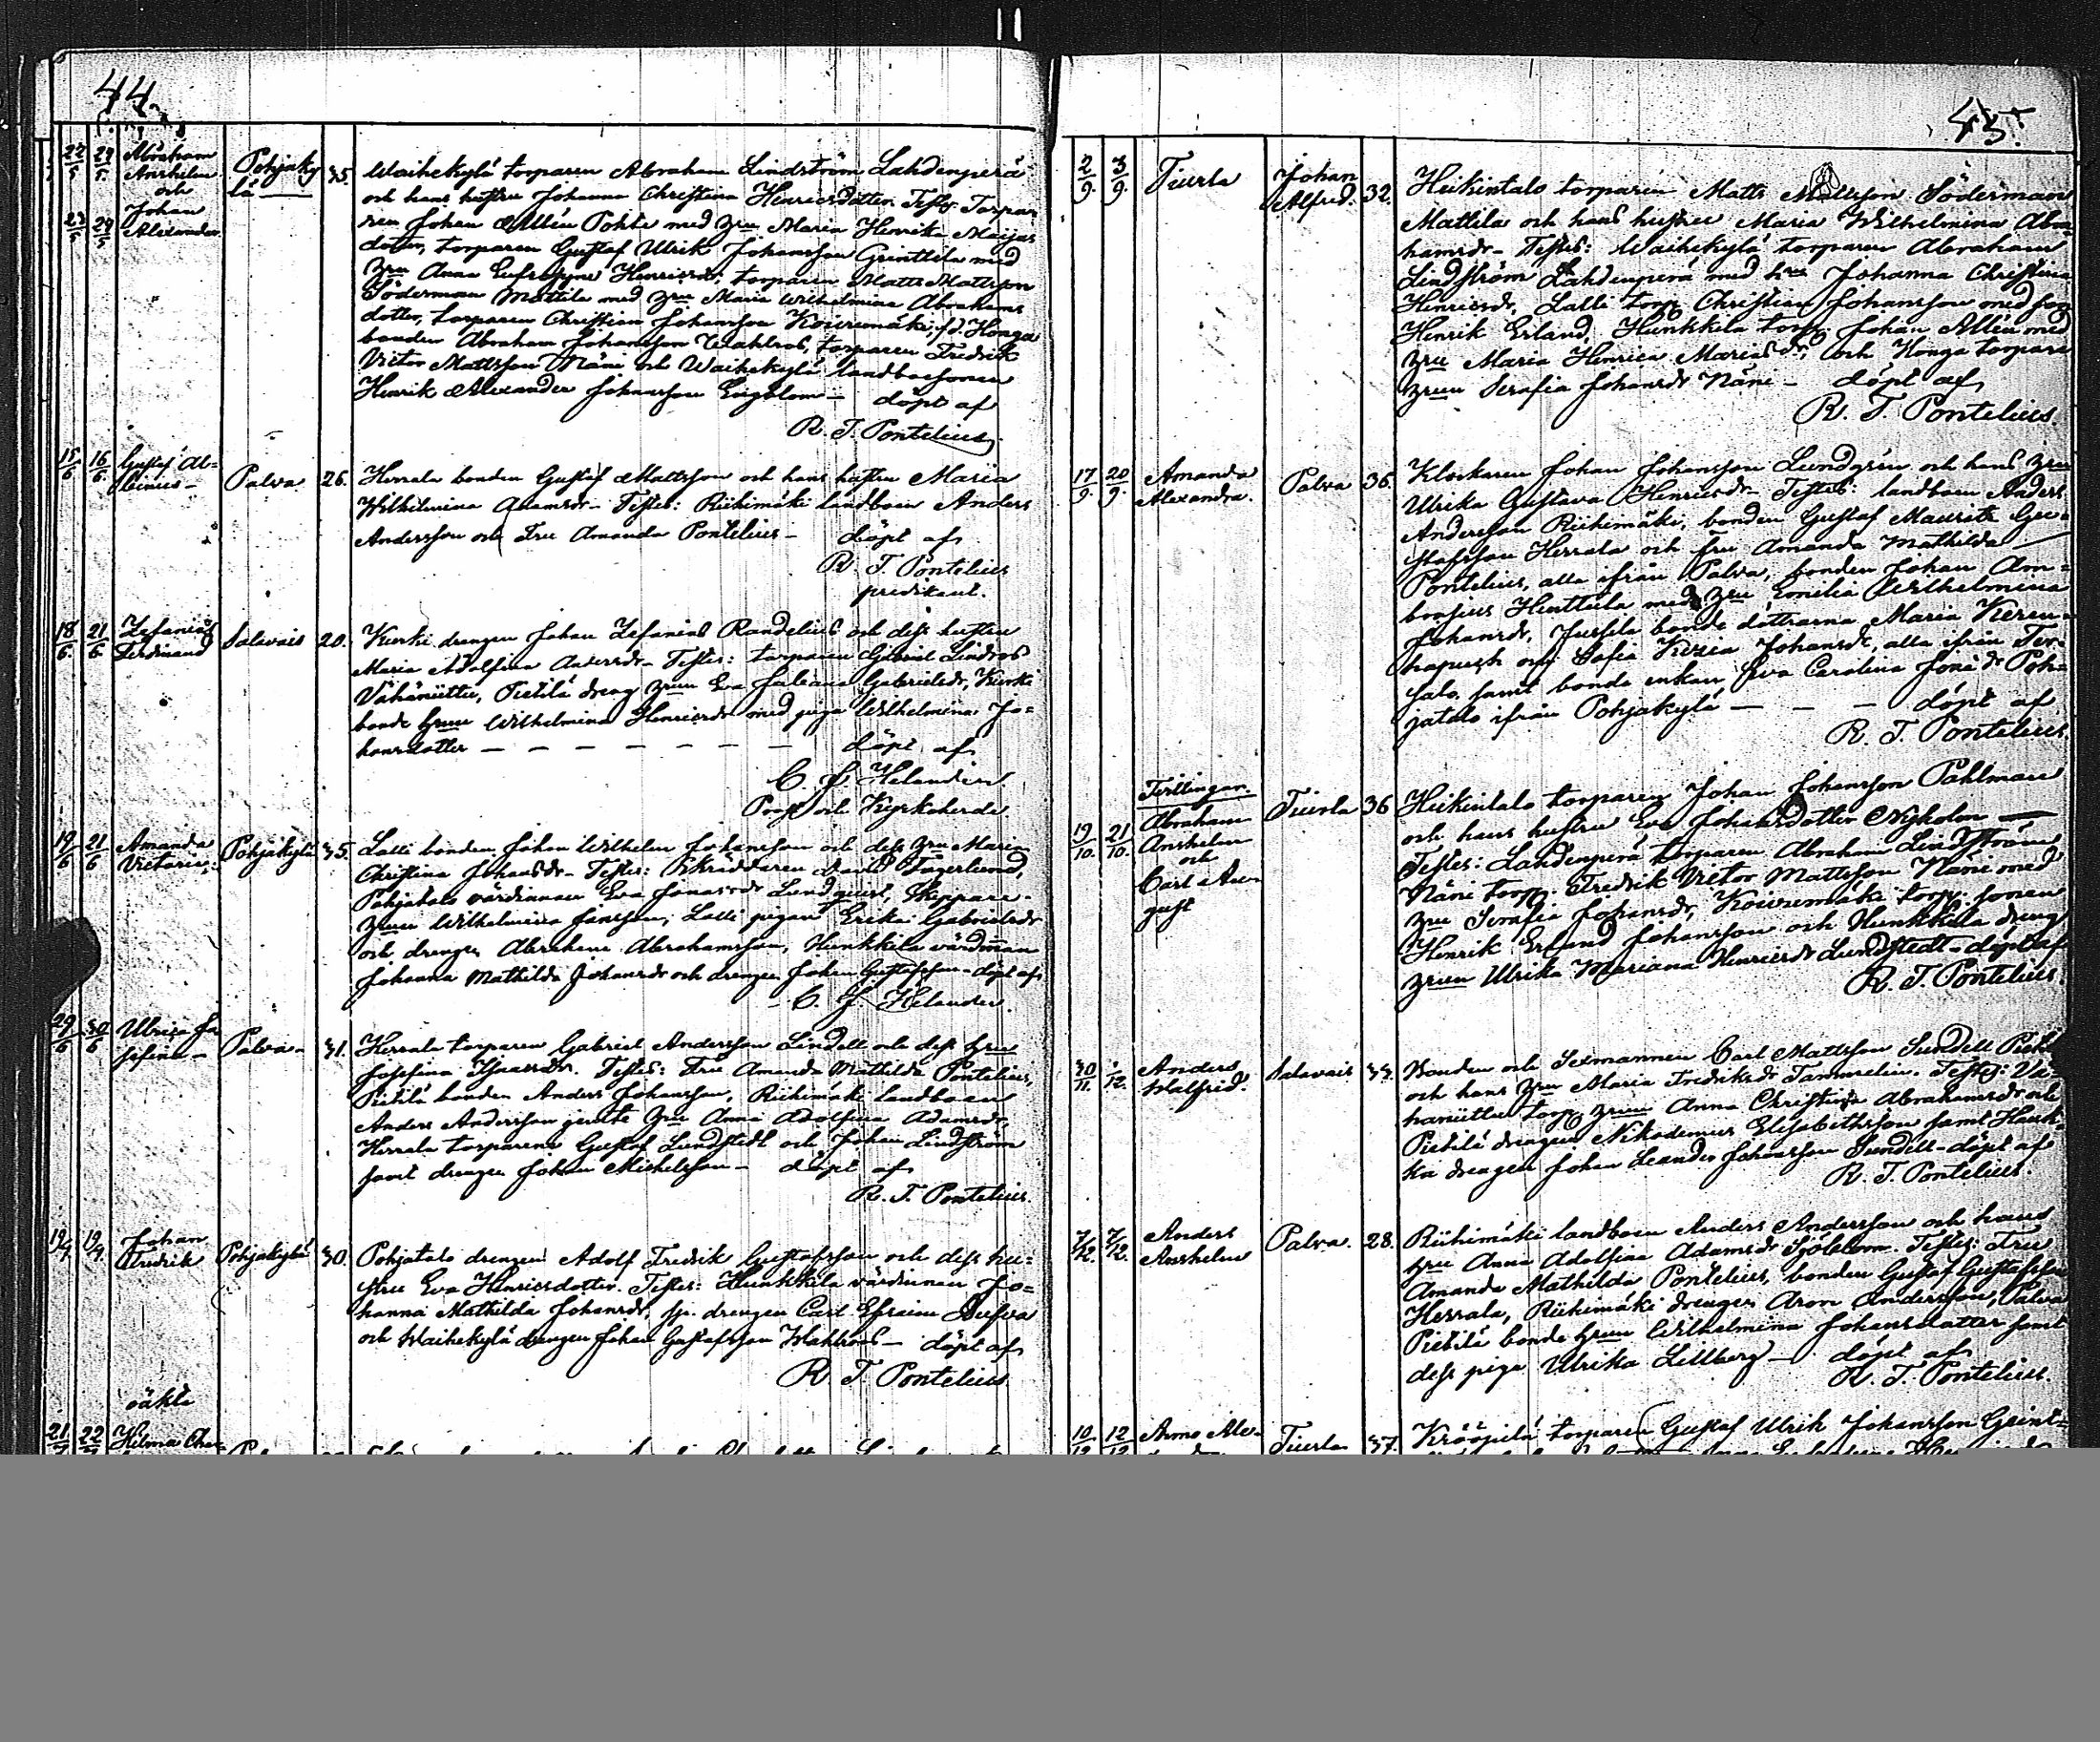 44
22/5 29/5 Abraham
Anshelm
och
23/5 29/5 Johan
Alexander
Pohjaky
lä
35. Waihekylä torparen Abraham Lindström Lahdenperä
och hans hustru Johanna Christina Henricsdotter. Testes: Torpar
ren Johan Allén Pohto med hru Maria Henrika Marjas
dotter, torparen Gustaf Ulrik Johansson Grinttila med
hru Anna Eufrosyne Henricsdr, torparen Matts Mattsson
Söderman Mattila med hru Maria Wilhelmina Abrahams
dotter, torparen Christian Johansson Koivumäki, Honga
bonden Abraham Johansson Wahlros, torparen Fredrik
Victor Mattsson Näni och Waihekylä landboesonen
Henrik Alexander Johansson Engblom — döpt af
R. T. Pontelius.
15/6 16/6 Gustaf Al=
binus — Palva 26. Herrala bonden Gustaf Mattsson och hans hustru Maria
Wilhelmina Adamsdr — Testes: Riihimäki landboen Anders
Andersson och Fru Amanda Pontelius — döpt af
R. T. Pontelius
predikant.
18/6 21/6 Zefanias
Ferdinand Salavais 20. Kurki drengen Johan Zefanias Randelius och dess hustru
Maria Adolfina Andersdr — Testes: torparen Gabriel Lindros
Vähäniittu, Pietilä dreng hrun Eva Juliana Gabrielsdr, Kurki
bonde hrun Wilhelmina Henricsdr med piga Wilhelmina Jo=
hansdotter — — — — — — — döpt af
C. J. Helander
Prost och Kyrkoherde
19/6 21/6 Amanda
Victoria. Pohjakylä 35. Lalli bonden Johan Wilhelm Johansson och dess hru Maria
Christina Johansdr — Testes: Skräddaren David Fagerlund,
Pohjatalo värdinnan Eva Jonasdr Lundquist, Skeppare
hrun Wilhelmina Jansson, Lalli pigan Erika Gabrielsdr
och drengen Abraham Abrahamsson, Hunkkila värdinnan
Johanna Mathilda Johansdr och drengen Johan Gustafsson — döpt af
C. J. Helander
29/6 30/6 Ulrica Jo
sefina — Palva — 31. Herrala torparen Gabriel Andersson Lindell och dess hru
Josefina Isaacsdr. Testes: Fru Amanda Mathilda Pontelius,
Pietilä bonden Anders Johansson, Riihimäki landboen
Anders Andersson jemte hru Anna Adolfina Adamsdr,
Herrala torparena Gustaf Lundstedt och Johan Lindström
samt drengen Johan Michelsson — döpt af
R. T. Pontelius.
Johan
Fredrik Pohjakylä 30. Pohjatalo drengen Adolf Fredrik Gustafsson och dess hu=
stru Eva Henricsdotter. Testes: Hunkkila värdinnan Jo=
hanna Mathilda Johansdr, drengen Carl Efraim
och Waihekylä drengen Johan Gustafsson Wahlroos — döpt af
R. T. Pontelius.
oäkta
21 22 Hilma Cha=
45.
2/9. 3/9. Tiurla Johan
Alfred. 32. Heikintalo torparen Matts Mattsson Söderman
Mattila och hans hustru Maria Wilhelmina Abra=
hamsdr — Testes: Waihekylä torparen Abraham
Lindström Lahdenperä med hru Johanna Christina
Henricsdr, Lalli torp. Christian Johansson med son
Henrik Erland, Hunkkila torp. Johan Allén med
hru Maria Henrica Mariasdr, och Honga torpare
hrun Serafia Johansdr Näni — döpt af
R. T. Pontelius.
17/9. 20/9. Amanda
Alexandra. Palva 36. Klockaren Johan Johansson Lundgrén och hans hru
Ulrika Gustava Henricsdr — Testes: landboen Anders
Andersson Riihimäki, bonden Gustaf Mauritz Gu=
stafsson Herrala och Fru Amanda Mathilda
Pontelius, alla ifrån Palva, bonden Johan Am=
brosius Hinttula med hru Emilia Wilhelmina
Johansdr, Jussila bonde döttrarna Maria Keren=
hapuch och Sofia Johansdr, alla ifrån Ter=
salo samt bonde enkan Eva Carolina Jonædr Poh=
jatalo ifrån Pohjakylä — — — döpt af
R. T. Pontelius.
Tvillingar.
19/10. 21/10. Abraham
Anshelm
och
Carl Au=
gust
Tiurla 36 Heikintalo torparen Johan Johansson Pahlman
och hans hustru Eva Johansdotter Nyholm —
Testes: Lahdenperä torparen Abraham Lindström,
Näni torp. Fredrik Victor Mattsson Näni med
hru Serafia Johansdr, Koivumäki torp. sonen
Henrik Erland Johansson och Hunkkila dreng
hrun Ulrika Mariana Henricsdr Lundstedt — döpt af
R. T. Pontelius.
30/11. 1/12. Anders
Walfrid. Salavais 33. Bonden och Sexmannen Carl Mattsson Sundell
och hans hru Maria Fredriksdr Tammelin. Testes: Vä=
häniittu torp. hrun Anna Christina Abrahamsdr och
Pietilä drengen Nikodemus Elisabethsson samt Hauk=
ka drengen Johan Leander Johansson Sundell — döpt af
R. T. Pontelius.
7/12. 7/12. Anders
Anshelm Palva. 28. Riihimäki landboen Anders Andersson och hans
hru Anna Adolfina Adamsdr Sjöblom. Testes: Fru
Amanda Mathilda Pontelius, bonden Gustaf Gustafsson
Herrala, Riihimäki drengen Aron Andersson, Palva
Pietilä bonde hrun Wilhelmina Johansdotter samt
dess piga Ulrika Lillberg — döpt af
R. T. Pontelius.
10 12 Arno Ale=
Tiurla 37. Krööpilä torparen Gustaf Ulrik Johansson Grint=